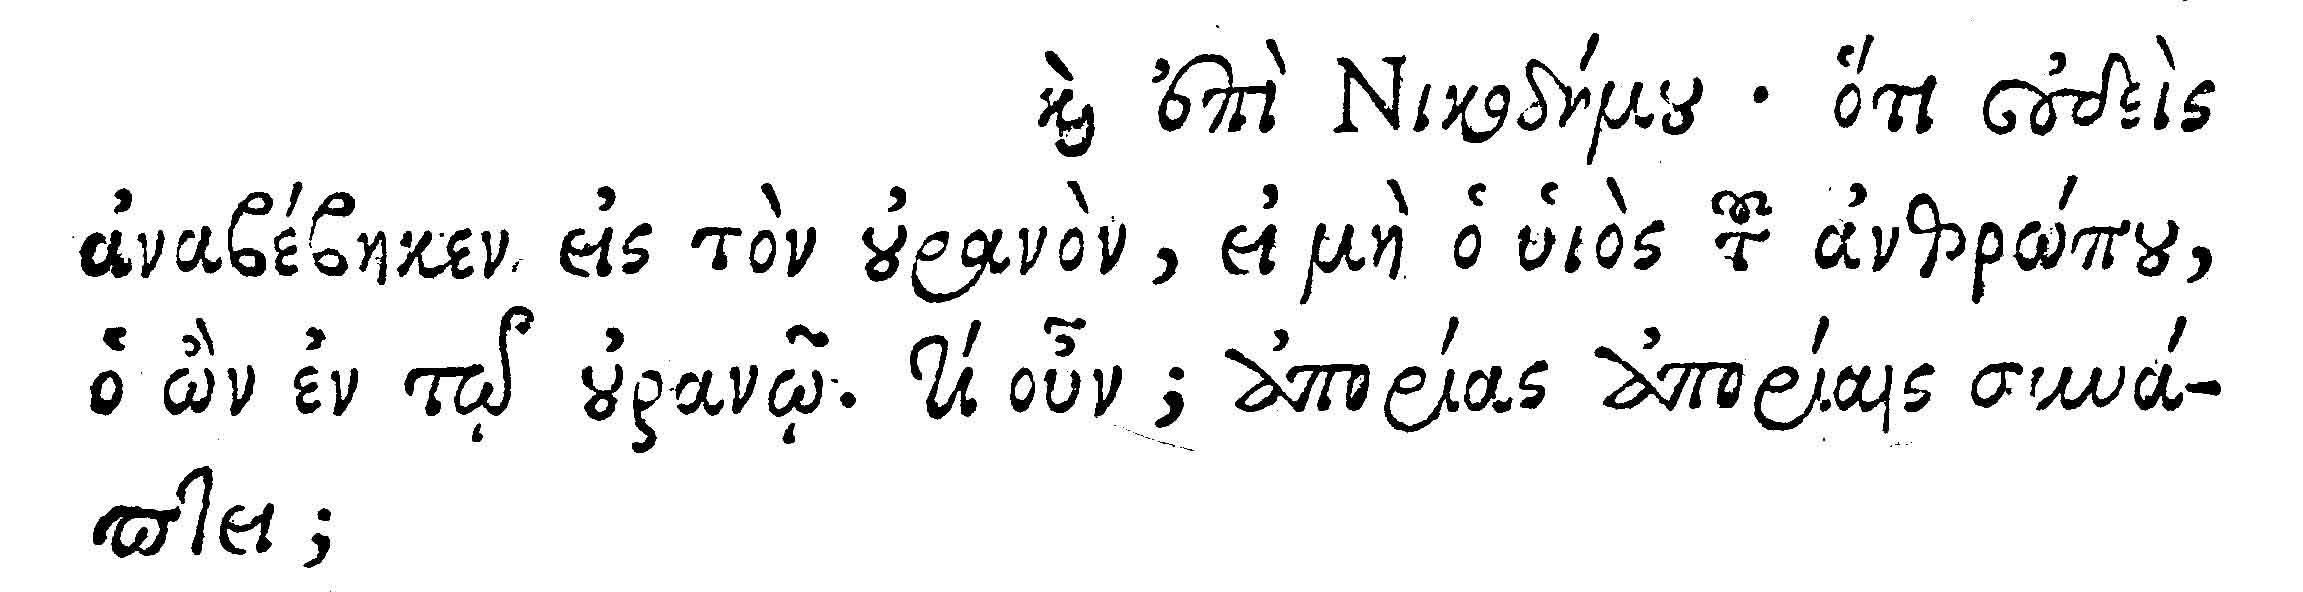 καὶ ἐπὶ Νικοδήμου · ὅτι οὐδεὶς
ἀναβέβηκεν εἰς τὸν οὐρανὸν, εἰ μὴ ὁ υἱὸς τοῦ ἀνθρώπου,
ὁ ὢν ἐν τῷ οὐρανῷ. τί οὖν; ἀπορίας ἀπορίαις συνά-
πτει;